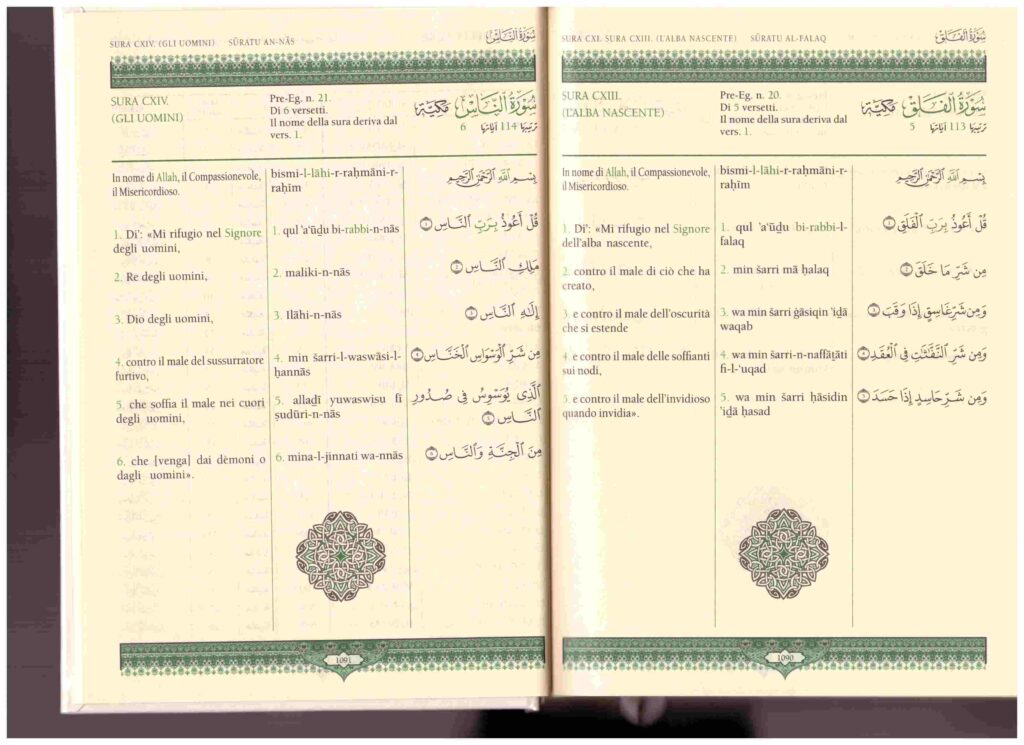 SURA CXIV. (GLI UOMINI) SŪRATU AN-NĀS سُورَةُ النَّاسِ
SURA CXIV.
(GLI UOMINI)
Pre-Eg. n. 21.
Di 6 versetti.
Il nome della sura deriva dal
vers. 1.
سُورَةُ النَّاسِ مَكِّيَّة
ترتيبها 114 آياتها 6
In nome di Allah, il Compassionevole,
il Misericordioso.
1. Di': «Mi rifugio nel Signore
degli uomini,
2. Re degli uomini,
3. Dio degli uomini,
4. contro il male del sussurratore
furtivo,
5. che soffia il male nei cuori
degli uomini,
6. che [venga] dai dèmoni o
dagli uomini».
bismi-l-lāhi-r-raḥmāni-r-
raḥīm
1. qul 'a'ūḏu bi-rabbi-n-nās
2. maliki-n-nās
3. Ilāhi-n-nās
4. min šarri-l-waswāsi-l-
ḫannās
5. allaḏī yuwaswisu fī
ṣudūri-n-nās
6. mina-l-jinnati wa-nnās
بِسْمِ اللَّهِ الرَّحْمَٰنِ الرَّحِيمِ
قُلْ أَعُوذُ بِرَبِّ ٱلنَّاسِ
مَلِكِ ٱلنَّاسِ
إِلَٰهِ ٱلنَّاسِ
مِن شَرِّ ٱلْوَسْوَاسِ ٱلْخَنَّاسِ
ٱلَّذِى يُوَسْوِسُ فِى صُدُورِ
ٱلنَّاسِ
مِنَ ٱلْجِنَّةِ وَٱلنَّاسِ
1091
SURA CXI. SURA CXIII. (L'ALBA NASCENTE) SŪRATU AL-FALAQ سُورَةُ الْفَلَقِ
SURA CXIII.
(L'ALBA NASCENTE)
Pre-Eg. n. 20.
Di 5 versetti.
Il nome della sura deriva dal
vers. 1.
سُورَةُ الْفَلَقِ مَكِّيَّة
ترتيبها 113 آياتها 5
In nome di Allah, il Compassionevole,
il Misericordioso.
1. Di': «Mi rifugio nel Signore
dell'alba nascente,
2. contro il male di ciò che ha
creato,
3. e contro il male dell'oscurità
che si estende
4. e contro il male delle soffianti
sui nodi,
5. e contro il male dell'invidioso
quando invidia».
bismi-l-lāhi-r-raḥmāni-r-
raḥīm
1. qul 'a'ūḏu bi-rabbi-l-
falaq
2. min šarri mā ḫalaq
3. wa min šarri ġāsiqin 'iḏā
waqab
4. wa min šarri-n-naffāṯāti
fi-l-'uqad
5. wa min šarri ḥāsidin
'iḏā ḥasad
بِسْمِ اللَّهِ الرَّحْمَٰنِ الرَّحِيمِ
قُلْ أَعُوذُ بِرَبِّ ٱلْفَلَقِ
مِن شَرِّ مَا خَلَقَ
وَمِن شَرِّ غَاسِقٍ إِذَا وَقَبَ
وَمِن شَرِّ ٱلنَّفَّٰثَٰتِ فِى ٱلْعُقَدِ
وَمِن شَرِّ حَاسِدٍ إِذَا حَسَدَ
1090